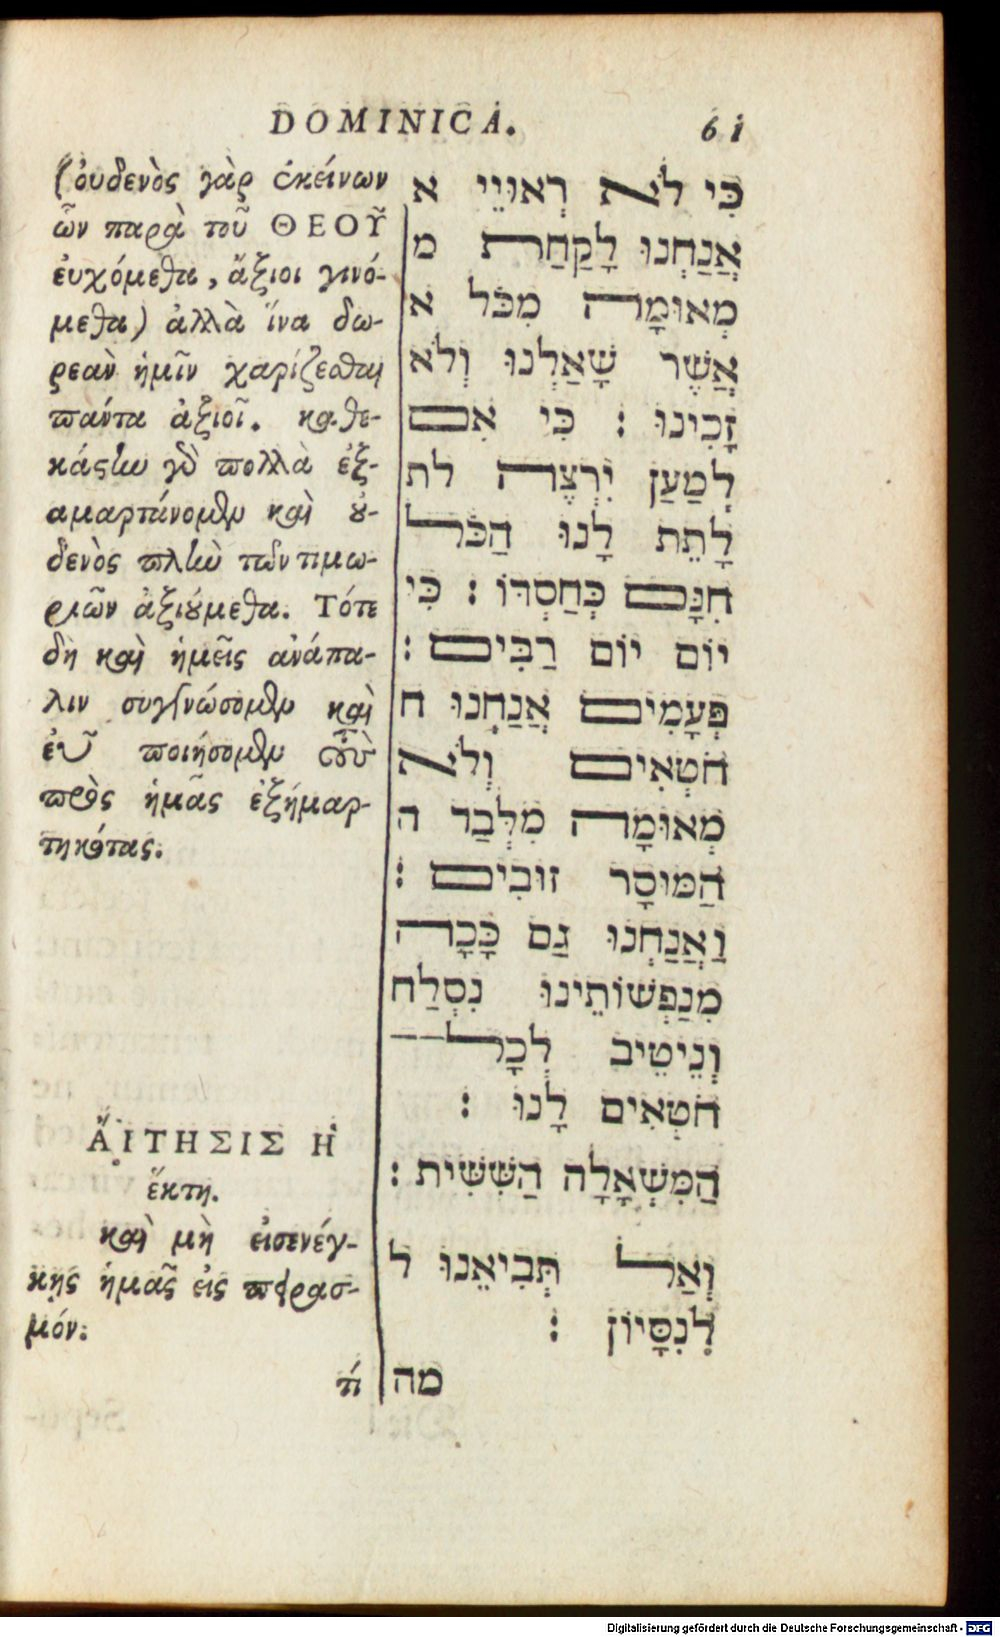 DOMINICA. 61
(ὀυδενὸς γὰρ ἐκείνων
ὧν παρὰ τοῦ ΘΕΟΥ͂
ἐυχόμεθα, ἄξιοι γινό-
μεθα) ἀλλὰ ἵνα δω-
ρεὰν ἡμῖν χαρίζεσθαι
παντα ἀξιοῖ. καθε-
κάστω γὸ πολλὰ ἐξ-
αμαρτάνομϟυ καὶ ȣ̓-
δενὸς πλὼ τῶν τιμω-
ριῶν ἀξιȣ́μεθα. Τότε
δη καὶ ἡμεῖς ἀνάπα-
λιν συγγνώσομϟυ καὶ
ἐῦ ποιήσομϟυ τοὺ
πρὸς ἡμᾶς ἐξήμαρ-
τηκότας.
ἌΙΤΗΣΙΣ Ἡ
ἕκτη.
καὶ μὴ εἰσενέγ-
κης ἡμᾶς εἰς πειρασ-
μόν:
τί
כִּי לֹא רְאוּיֵי א
אֲנַחְנוּ לָקַחַת מ
מְאוּמָה מִכֹּל א
אֲשֶׁר שָׁאַלְנוּ וְלֹא
זָכִינוּ : כִּי אִם
לְמַעַן יִרְצֶה לת
לָתֵת לָנוּ הַכֹּל
חִנָּם כְּחַסְדּוֹ : כִּי
יוֹם יוֹם רַבִּים :
פְּעָמִים אֲנַחְנוּ ח
חֹטְאִים וְלֹא
מְאוּמָה מִלְּבַר ה
הַמּוּסָר זוּבִים :
וַאֲנַחְנוּ גַם כָּכָה
מִנַפְשׁוֹתֵינוּ נִסְלַח
וְנֵיטִיב לְכָל
חֹטְאִים לָנוּ :
הַמִּשְׁאָלָה הַשִּׁשִּׁית :
וְאַל תְּבִיאֵנוּ ל
לְנִסָּיוֹן :
מה